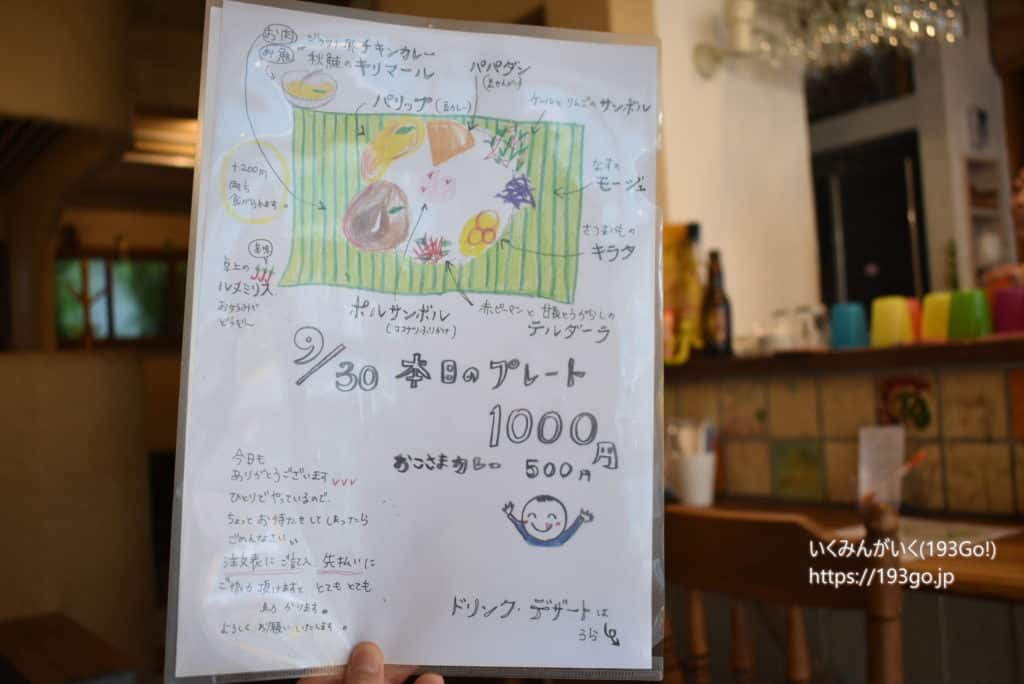 お肉
ジャフナ風チキンカレー
お魚
秋鮭のキリマール
パパダン
(豆せんべい)
パリップ(豆カレー)
ケールとりんごのサンボル
+200円
両方
食べられます。
なすの
モージュ
さつまいもの
キラタ
辛味
卓上の
ルヌミリス
お好みで
どうぞ〜
ポルサンボル
(ココナツふりかけ)
赤ピーマンと甘長とうがらしの
テルダーラ
9/30 本日のプレート
1000円
おこさまカレー 500円
今日も
ありがとうございます
ひとりでやっているので、
ちょっとお待たせしてしまったら
ごめんなさい
注文表にご記入、先払いに
ご協力頂けますと とてもとても
助かります。
よろしくお願いいたします。
ドリンク・デザートは
うら
いくみんがいく(193Go!)
https://193go.jp